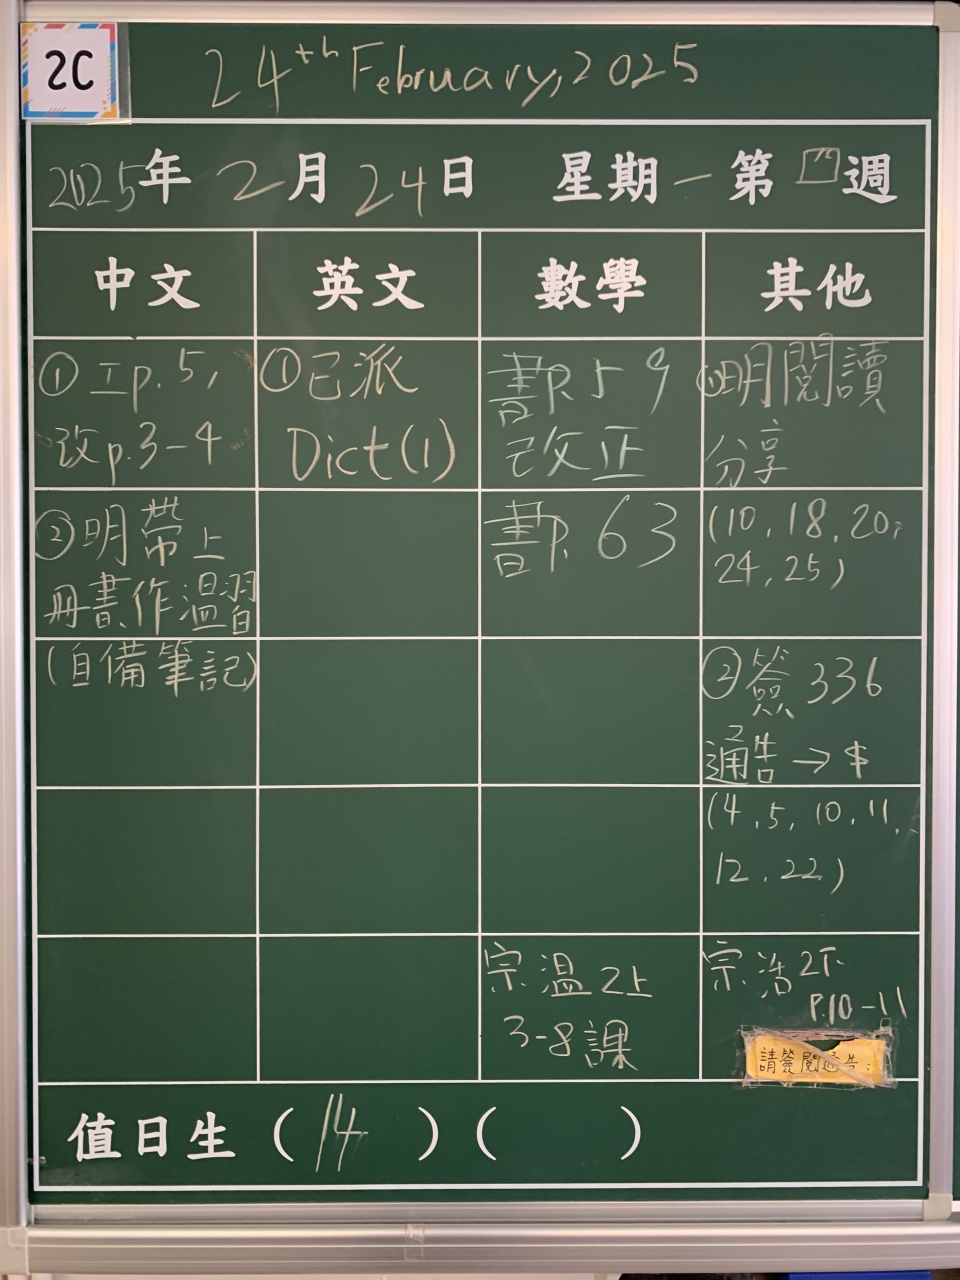 2C
24th February, 2025
2025年 2月 24日 星期一 第四週
中文 英文 數學 其他
① 工p.5,
改p.3-4
② 明帶上
冊書作溫習
(自備筆記)
① 已派
Dict(1)
書P.59
改正
書P.63
宗溫2上
3-8課
① 明閱讀
分享
(10, 18, 20,
24, 25)
② 簽336
通告→$
(4, 5, 10, 11,
12, 22)
宗浩2下
P.10-11
請簽閱通告:
值日生 (14) ( )